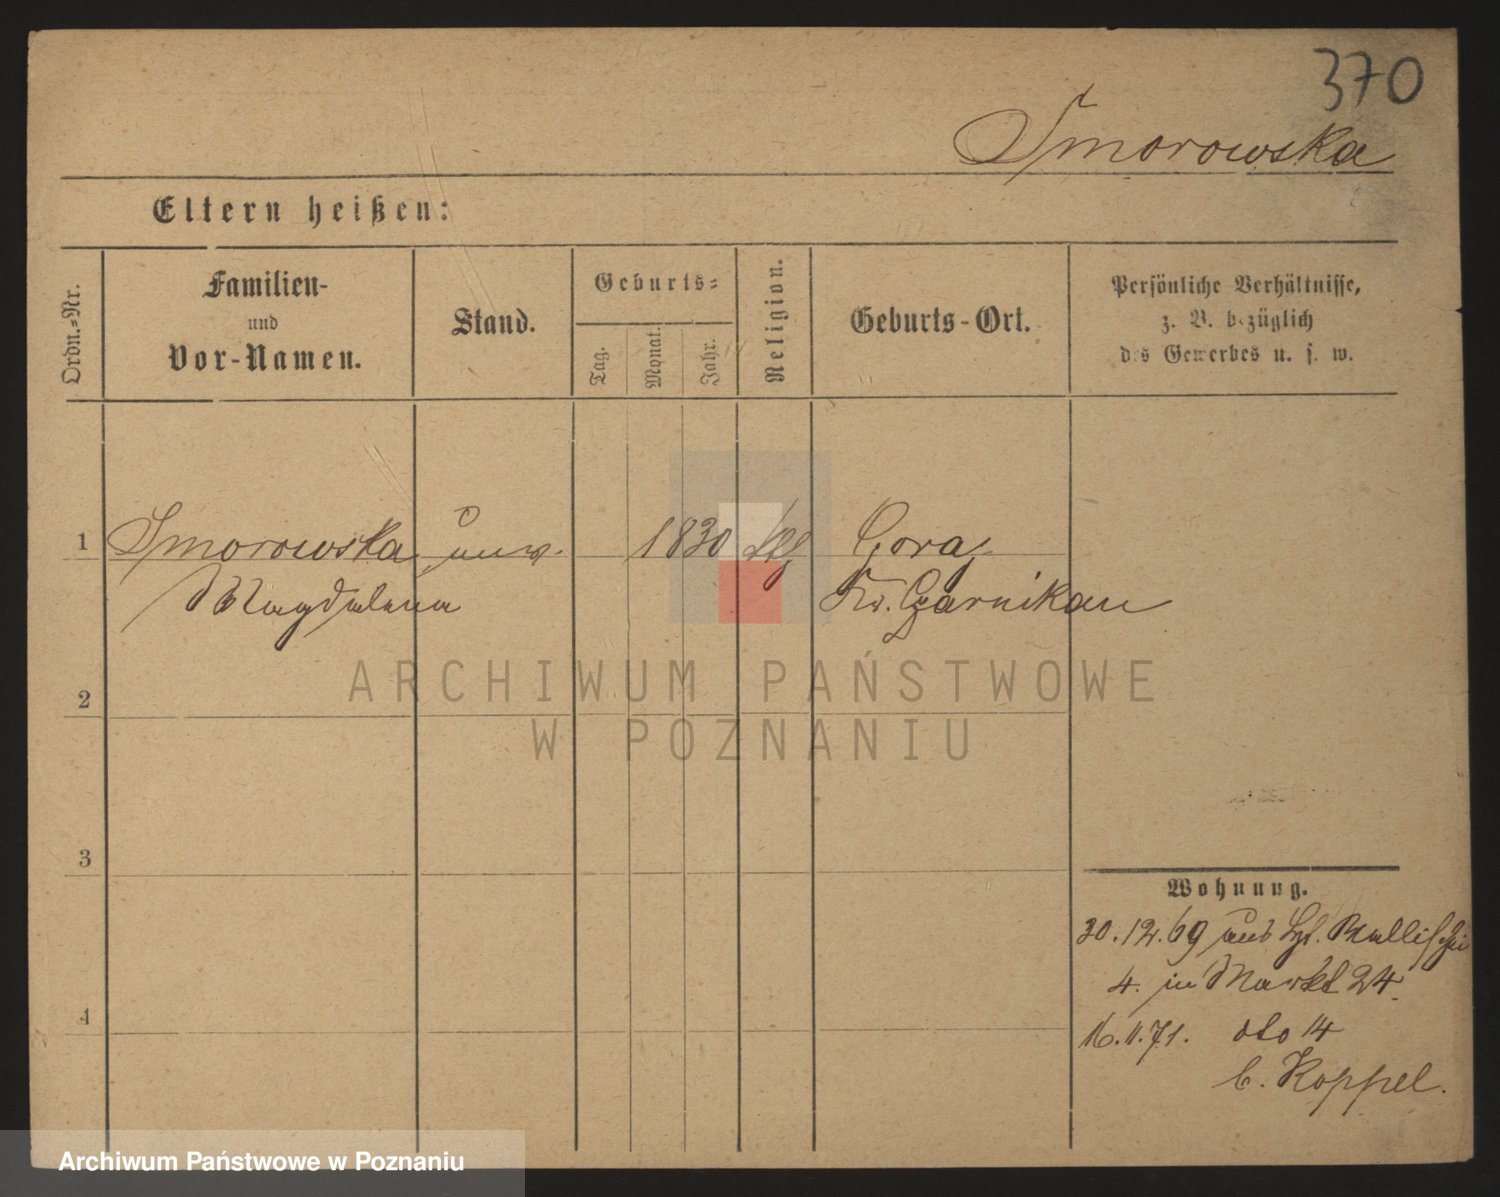 370
Smorowska
Eltern heißen:
Ordn.=Nr.
Familien-
und
Vor-Namen.
Stand.
Geburts=
Tag.
Monat.
Jahr.
Religion.
Geburts-Ort.
Persönliche Verhältnisse,
z. B. bezüglich
des Gewerbes u. s. w.
1
Smorowska unv. 1830 Gora
Magdalena Kr. Czarnikau
ARCHIWUM PAŃSTWOWE
W POZNANIU
2
3
4
Wohnung.
30.12.69 aus
4. in Markt 24.
16.11.71. dto 14
b. Koppel.
Archiwum Państwowe w Poznaniu